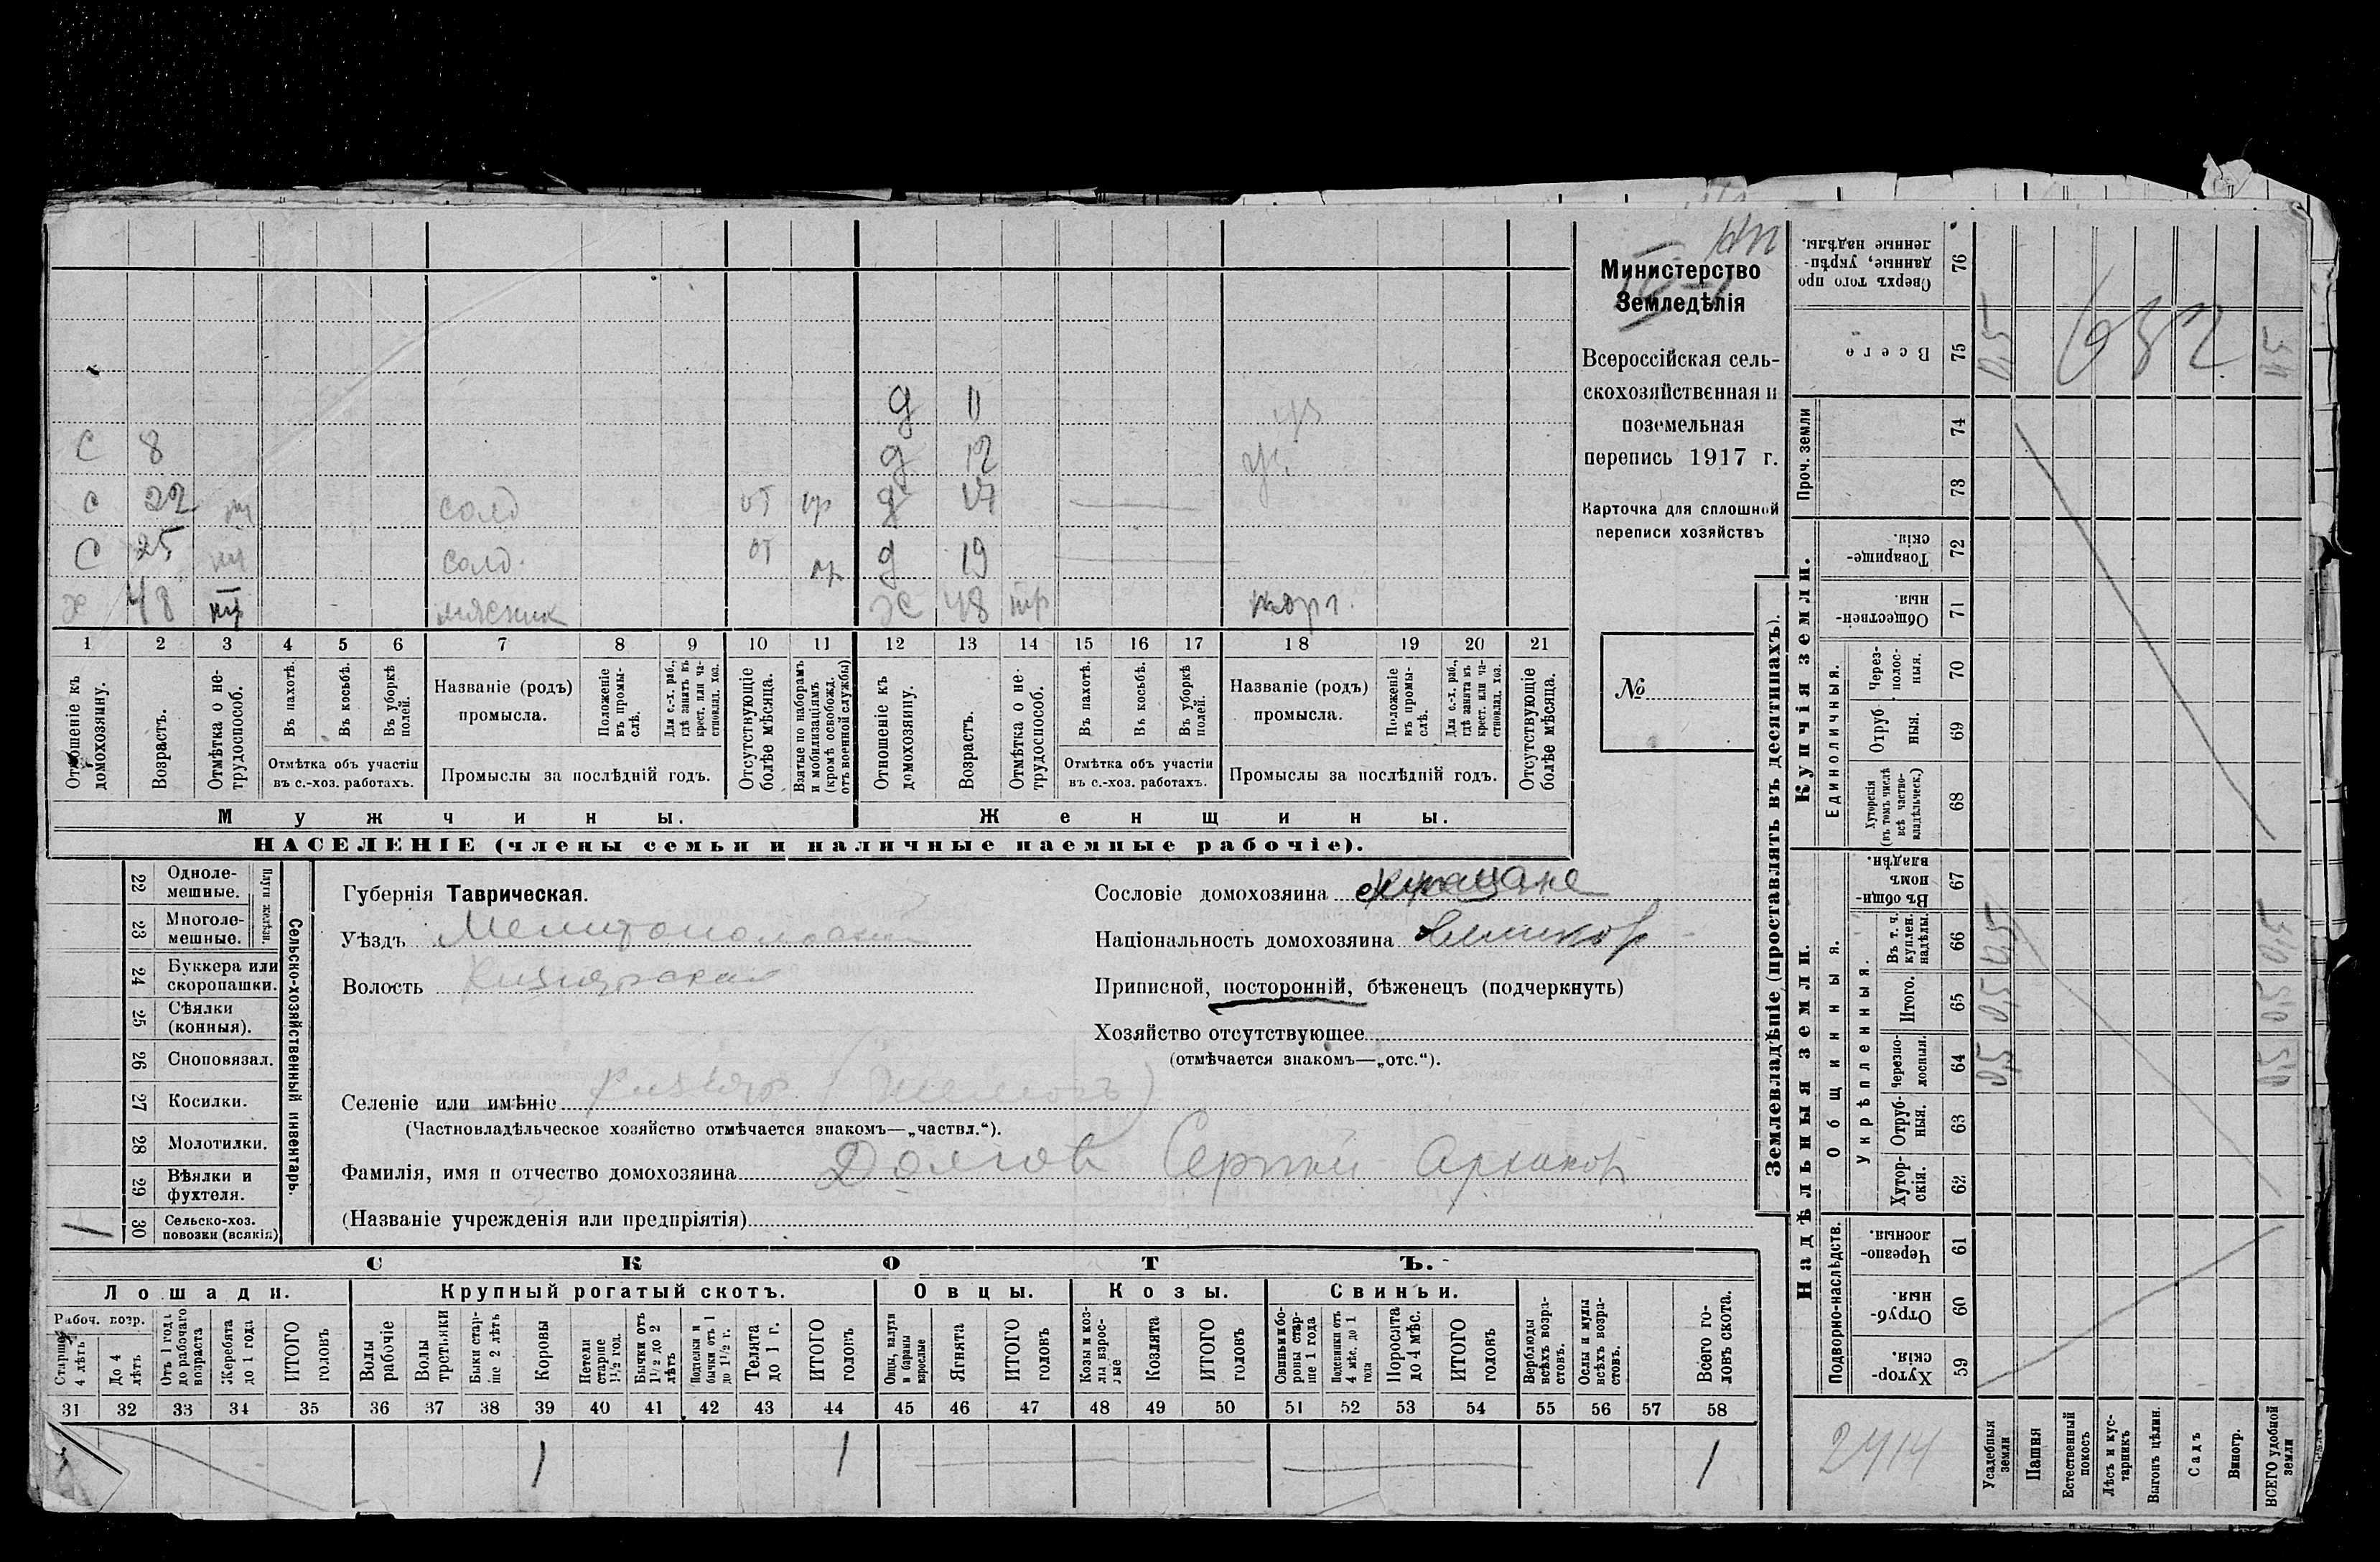 Министерство
Земледѣлія
Всероссійская сель-
скохозяйственная и
поземельная
перепись 1917 г.
Карточка для сплошной
переписи хозяйствъ
№
д 11
С 8 д 12
С 22 солд от д 17
С 25 солд. от д 19
х 48 мясник ж 48 торг.
1 2 3 4 5 6 7 8 9 10 11 12 13 14 15 16 17 18 19 20 21
Отношеніе къ домохозяину.
Возрастъ.
Отмѣтка о не-
трудоспособ.
Въ пахотѣ.
Въ косьбѣ.
Въ уборкѣ полей.
Отмѣтка объ участіи
въ с.-хоз. работахъ.
Названіе (родъ)
промысла.
Положеніе въ промы-
слѣ.
Для с.-х. раб., гдѣ занятъ въ крест. или ча-
стновлад. хоз.
Промыслы за послѣдній годъ.
Отсутствующіе
болѣе мѣсяца.
Взятые по наборамъ
и мобилизаціямъ
(кромѣ освобожд.
отъ военной службы)
Отношеніе къ
домохозяину.
Возрастъ.
Отмѣтка о не-
трудоспособ.
Въ пахотѣ.
Въ косьбѣ.
Въ уборкѣ полей.
Отмѣтка объ участіи
въ с.-хоз. работахъ.
Названіе (родъ)
промысла.
Положеніе въ промы-
слѣ.
Для с.-х. раб., гдѣ занята въ крест. или ча-
стновлад. хоз.
Промыслы за послѣдній годъ.
Отсутствующіе
болѣе мѣсяца.
Мужчины. Женщины.
НАСЕЛЕНІЕ (члены семьи и наличные наемные рабочіе).
Сельско-хозяйственный инвентарь.
Плуги желѣзн.
22 Одноле-
мешные.
23 Многоле-
мешные.
24 Буккера или
скоропашки.
25 Сѣялки
(конныя).
26 Сноповязал.
27 Косилки.
28 Молотилки.
29 Вѣялки и
фухтеля.
1 30 Сельско-хоз.
повозки (всякія)
Губернія Таврическая.
Уѣздъ Мелитопольский
Волость Кизиярская
Сословіе домохозяина
Національность домохозяина
Приписной, посторонній, бѣженецъ (подчеркнуть)
Хозяйство отсутствующее
(отмѣчается знакомъ—„отс.“).
Селеніе или имѣніе Кизияр
(Частновладѣльческое хозяйство отмѣчается знакомъ—„частвл.“).
Фамилія, имя и отчество домохозяина Долгов Сергей Архипов
(Названіе учрежденія или предпріятія)
СКОТЪ.
Лошади. Крупный рогатый скотъ. Овцы. Козы. Свиньи.
Рабоч. возр.
Старше 4 лѣтъ
До 4 лѣтъ
Отъ 1 года до рабочаго возраста
Жеребята до 1 года
ИТОГО головъ
Волы рабочіе
Волы третьяки
Быки стар-
ше 2 лѣтъ
Коровы
Нетели старше 1½ год.
Бычки отъ 1½ до 2 лѣтъ
Подтелки и бычки отъ 1 до 1½ г.
Телята до 1 г.
ИТОГО головъ
Овцы, валухи и бараны взрослые
Ягнята
ИТОГО головъ
Козы и коз-
лы взрос-
лые
Козлята
ИТОГО головъ
Свиньи и бо-
ровы стар-
ше 1 года
Подсвинки отъ 4 мѣс. до 1 года
Поросята до 4 мѣс.
ИТОГО головъ
Верблюды всѣхъ возра-
стовъ.
Ослы и мулы всѣхъ возра-
стовъ.
Всего го-
ловъ скота.
31 32 33 34 35 36 37 38 39 40 41 42 43 44 45 46 47 48 49 50 51 52 53 54 55 56 57 58
1 1 1
Землевладѣніе (проставлять въ десятинахъ).
Купчія земли.
Надѣльныя земли.
Проч. земли
Единоличныя.
Общинныя.
Укрѣпленныя.
Подворно-наслѣдств.
Сверхъ того про
данные, укрѣп-
ленные надѣлы. 76
Всего 75 0,5
74
73
Товарище-
скія. 72
Обществен-
ныя. 71
Через-
полос-
ныя. 70
Отруб
ныя. 69
Хуторскія
(въ томъ числѣ
всѣ частно-
владѣльческ.) 68
Въ общи-
номъ
владѣн. 67
Въ т. ч.
куплен.
надѣлы. 66 0,5 0,5
Итого. 65 0,5 0,5
Черезпо-
лосныя. 64 0,5 0,5
Отруб-
ныя. 63
Хутор-
скія. 62
Черезпо-
лосныя. 61
Отруб-
ныя. 60
Хутор-
скія. 59
2414
Усадебныя
земли
Пашня
Естественный
покосъ
Лѣсъ и кус-
тарникъ
Выгонъ цѣлин.
Садъ
Виногр.
ВСЕГО удобной
земли